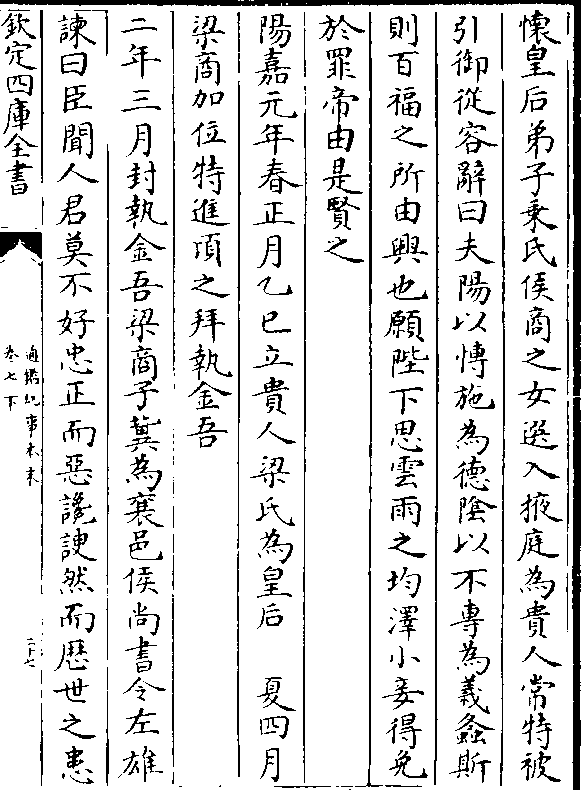 懐皇后弟子乗氏侯商之女選入掖庭為貴人常特被
引御從容辭曰夫陽以博施為德陰以不專為義螽斯
則百福之所由興也願陛下思雲雨之均澤小妾得免
於罪帝由是賢之
陽嘉元年春正月乙巳立貴人梁氏為皇后　夏四月
梁商加位特進頃之拜執金吾
二年三月封執金吾梁商子冀為襄邑侯尚書令左雄
諫曰臣聞人君莫不好忠正而惡讒諛然而歴世之患
欽定四庫全書
通鑑紀事本末
卷七下
二十七